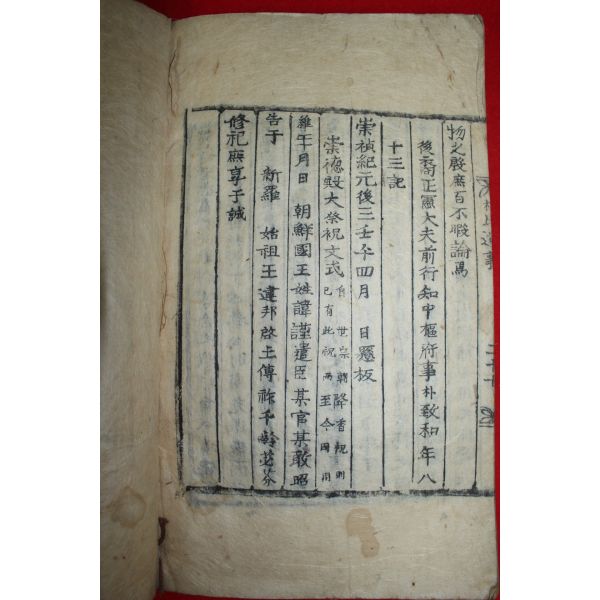 物之殷庶百不暇論焉
後裔正憲大夫前行知中樞府事朴致和年八
十三記
崇禎紀元後三壬午四月　日懸板
崇德殿大祭祝文式自世宗朝降香規例已有此祝而至今因用
維年月日　朝鮮國王姓諱謹遣臣某官某敢昭
告于　新羅　始祖王建邦啓土傳祚千齡苾芬
修祀庶享于誠
遺事